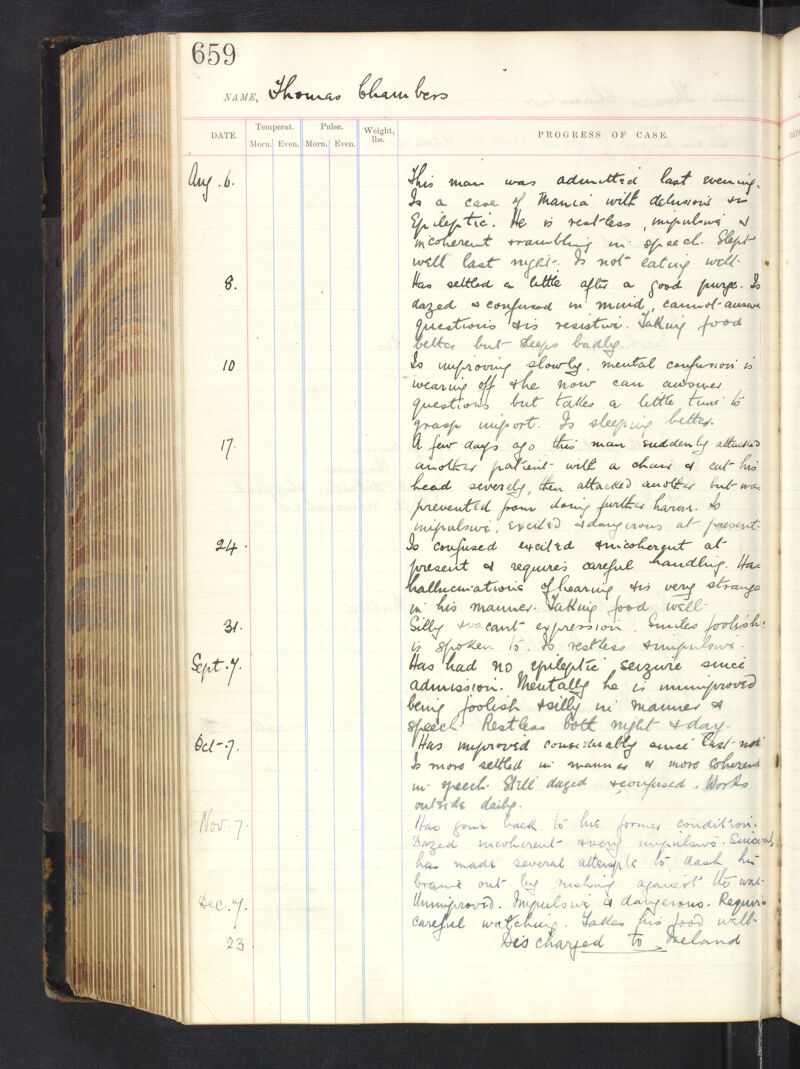 659
NAME, Thomas Chambers
DATE. Temperat. Pulse. Weight, lbs. PROGRESS OF CASE.
Morn. Even. Morn. Even.
Aug. 6. This man was admitted last evening.
Is a case of Mania with delusions & is
Epileptic. He is restless, impulsive &
incoherent & rambling in speech. Slept
well last night. Is not eating well.
8. Has settled a little after a good purge. Is
dazed & confused in mind, cannot answer
questions & is resistive. Taking food
better but sleeps badly.
10 Is improving slowly, mental confusion is
wearing off & he now can answer
questions but takes a little time to
grasp import. Is sleeping better.
17. A few days ago this man suddenly attacked
another patient with a chair & cut his
head severely, then attacked another but was
prevented from doing further harm. Is
impulsive, excited & dangerous at present.
24. Is confused excited & incoherent at
present & requires careful handling. Has
hallucinations of hearing & is very strange
in his manner. Taking food well.
31. Silly & vacant expression. Smiles foolishly
is spoken to. Is restless & impulsive.
Sept. 7. Has had no epileptic seizure since
admission. Mentally he is unimproved
being foolish & silly in manner &
speech. Restless both night & day.
Oct. 7. Has improved considerably since last note
Is more settled in manner & more coherent
in speech. Still dazed & confused. Works
outside daily.
Nov. 7. Has gone back to his former condition.
Dazed incoherent & very impulsive. Suicidal
has made several attempts to dash his
brains out by rushing against the wall.
Dec. 7. Unimproved. Impulsive & dangerous. Requires
careful watching. Takes his food well.
23 Discharged to Ireland